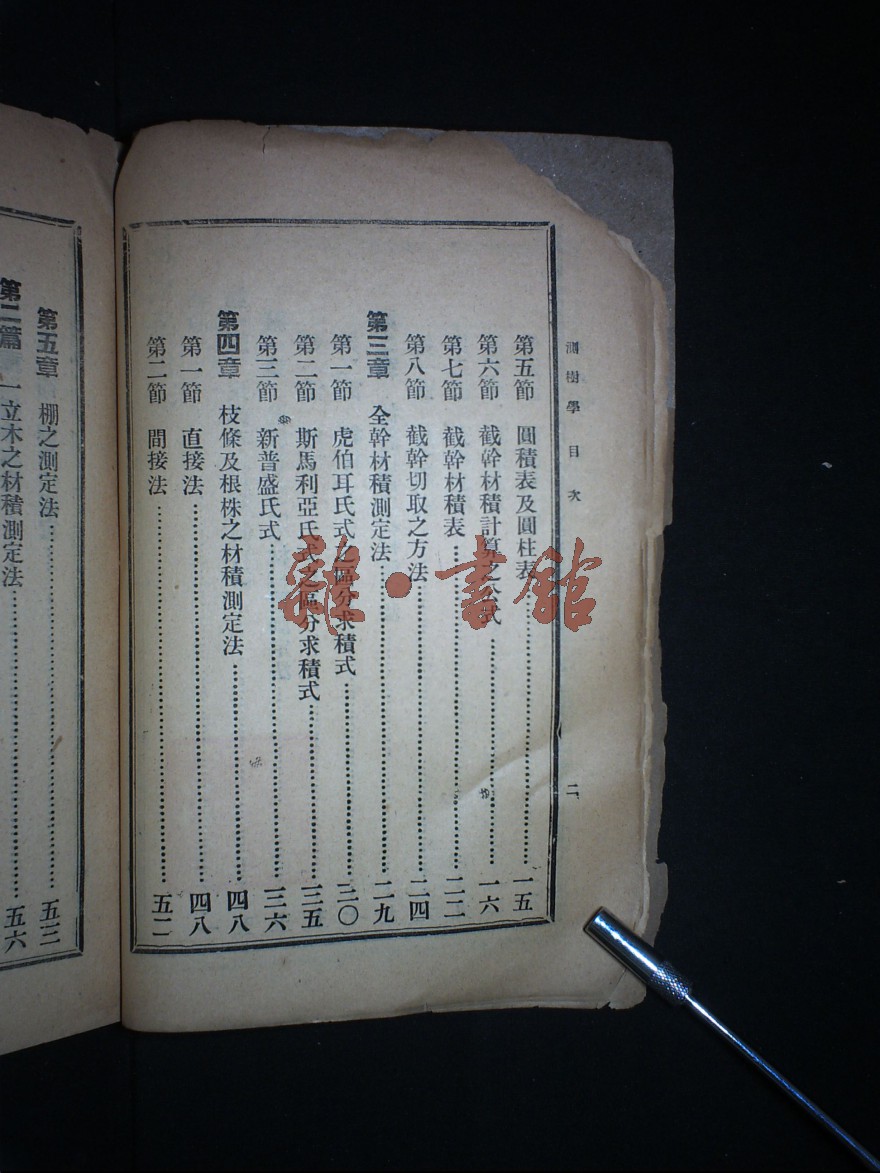 測樹學 目次 二
第五節 圓積表及圓柱表……一五
第六節 截幹材積計算之公式……一六
第七節 截幹材積表……二二
第八節 截幹切取之方法……二四
第三章 全幹材積測定法……二九
第一節 虎伯耳氏式之區分求積式……三〇
第二節 斯馬利亞氏式之區分求積式……三五
第三節 新普盛氏式……三六
第四章 枝條及根株之材積測定法……四八
第一節 直接法……四八
第二節 間接法……五二
第五章 棚之測定法……五三
第二篇 一立木之材積測定法……五六
雜·書館